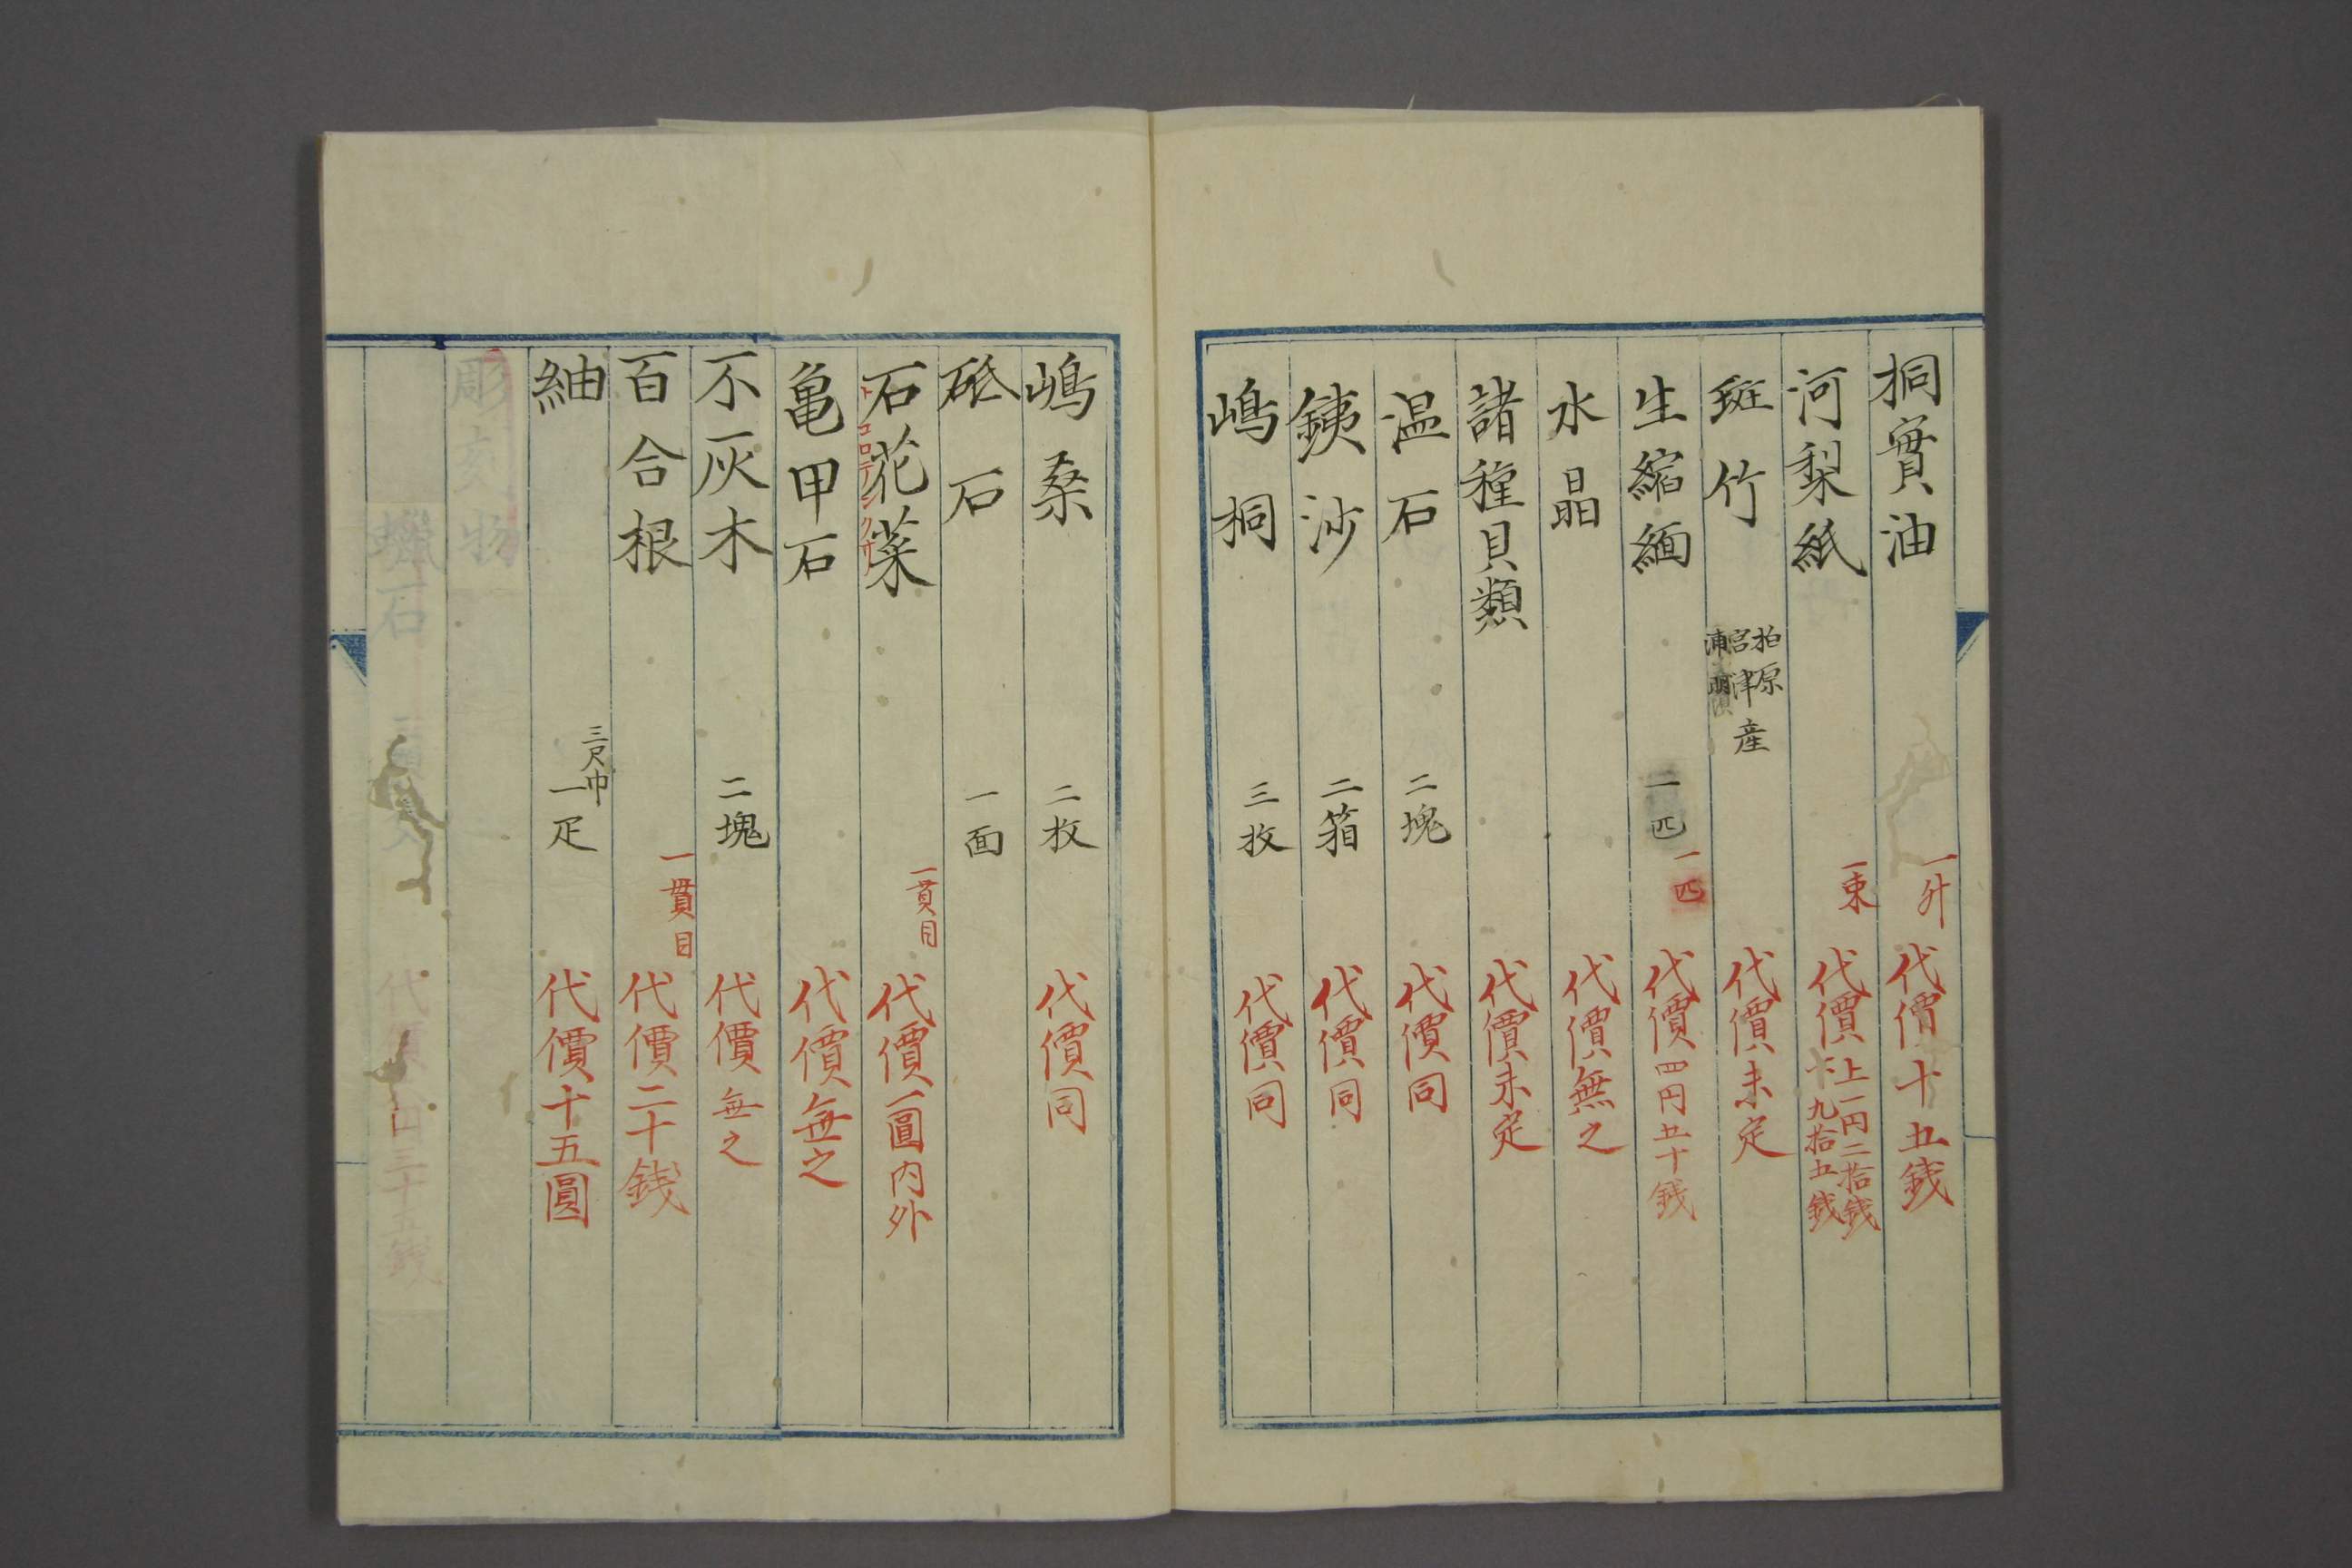 桐實油 一升 代價十五銭
河梨紙 一束 代價 上一円二拾銭 下九拾五銭
斑竹 柏原 宮津 産 代價未定
生縮緬 一匹 一匹 代價四円五十銭
水晶 代價無之
諸種貝類 代價未定
温石 二塊 代價同
銕沙 二箱 代價同
嶋桐 三枚 代價同
嶋桑 二枚 代價同
砥石 一面
石花菜 トコロテンクサ 一貫目 代價一圓内外
亀甲石 代價無之
不灰木 二塊 代價無之
百合根 一貫目 代價二十銭
紬 三尺巾 一疋 代價十五圓
彫刻物
蠟石